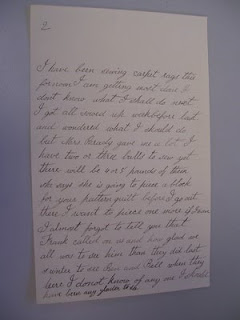 2
I have been sewing carpet rags this
forenoon I am getting most done I
dont know what I shall do next
I got all sewed up week before last
and wondered what I should do
but Mrs Brady gave me a lot I
have two or three balls to sew yet
there will be 4 or 5 pounds of them
she says she is going to piece a block
for your pattern quilt before I go out
there I want to piece one more if I can
I almost forgot to tell you that
Frank called on us and how glad we
all was to see him than they did last
winter to see and Nell when they
here I donot know of any one I should
have been any gladder to see